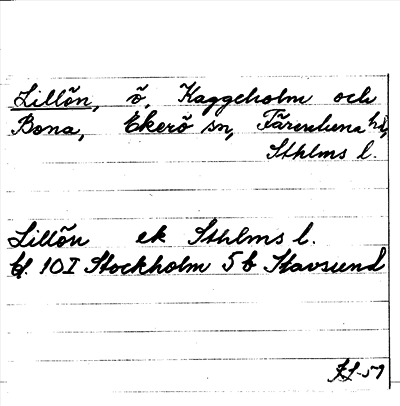 Lillön, ö, Kaggeholm och
Bona, Ekerö sn, Färentuna hd,
Sthlms l.
Lillön ek Sthlms l.
bl. 10I Stockholm 5 b Stavsund